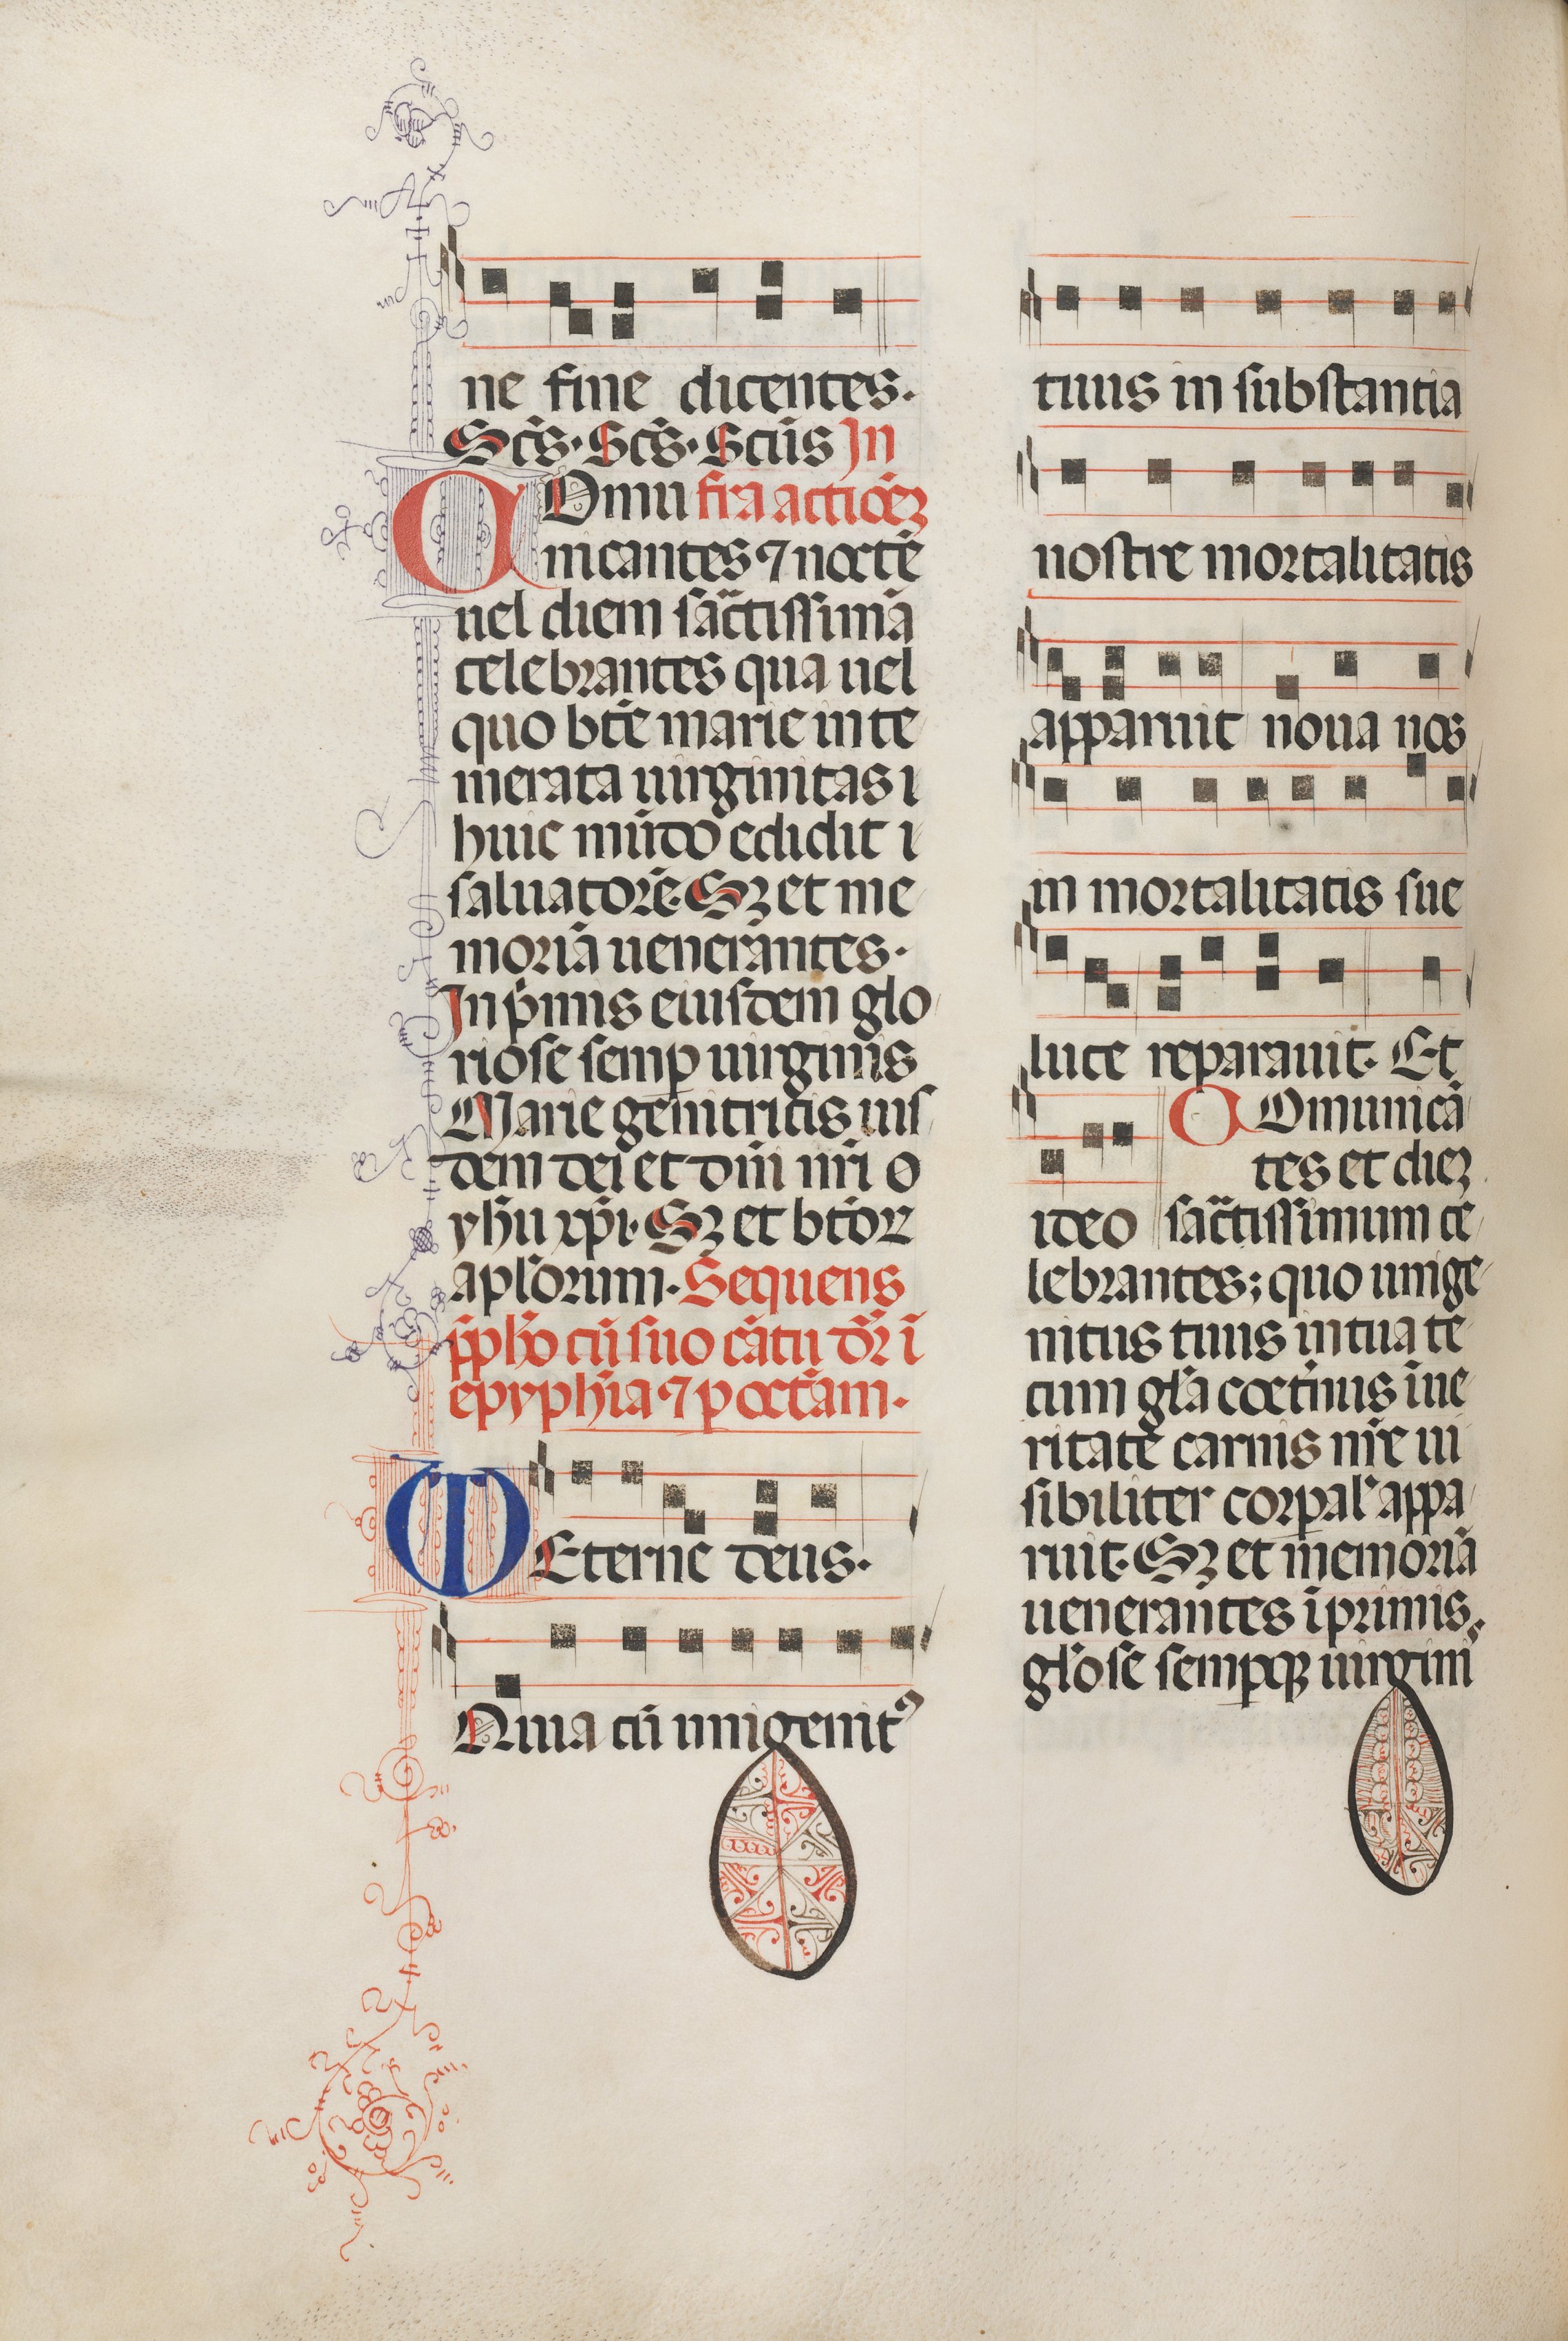 ne fine dicentes.
Sc̃s. Sc̃s. Sctũs In
COmu fra actiōēz
nicantes ⁊ nocte᷒̃
uel diem sac̃tissimã
celebrantes qua uel
quo bt̃e marie inte
merata uirginitas i
huic mũdo edidit i
saluatorẽ. Sz et me
moriã uenerantes.
In p̃mis eiusdem glo
riose semp uirginis
Marie genitricis eius
dem dei et dñi nr̃i
yhũ xp̃i. Sz et bt̃oꝝ
apl̃orum. Sequens
p̃pho cũ suo cãtu dr̃ ĩ
epyphĩa ⁊ p octãm.
Eterne deus.
Quia cũ unigenitꝰ
tuus in substantia
nostre mortalitatis
apparuit noua nos
in mortalitatis sue
luce reparauit. Et
ideo
COmunicã
tes et diez
sac̃tissimum ce
lebrantes; quo unige
nitus tuus in tua te
cum gl̃a coet̃nus ĩ ue
ritate carnis nr̃e ui
sibiliter corpal̓ appa
ruit. Sz et memoriã
uenerantes ĩ primis.
gl̓ose sempqꝫ uirgini